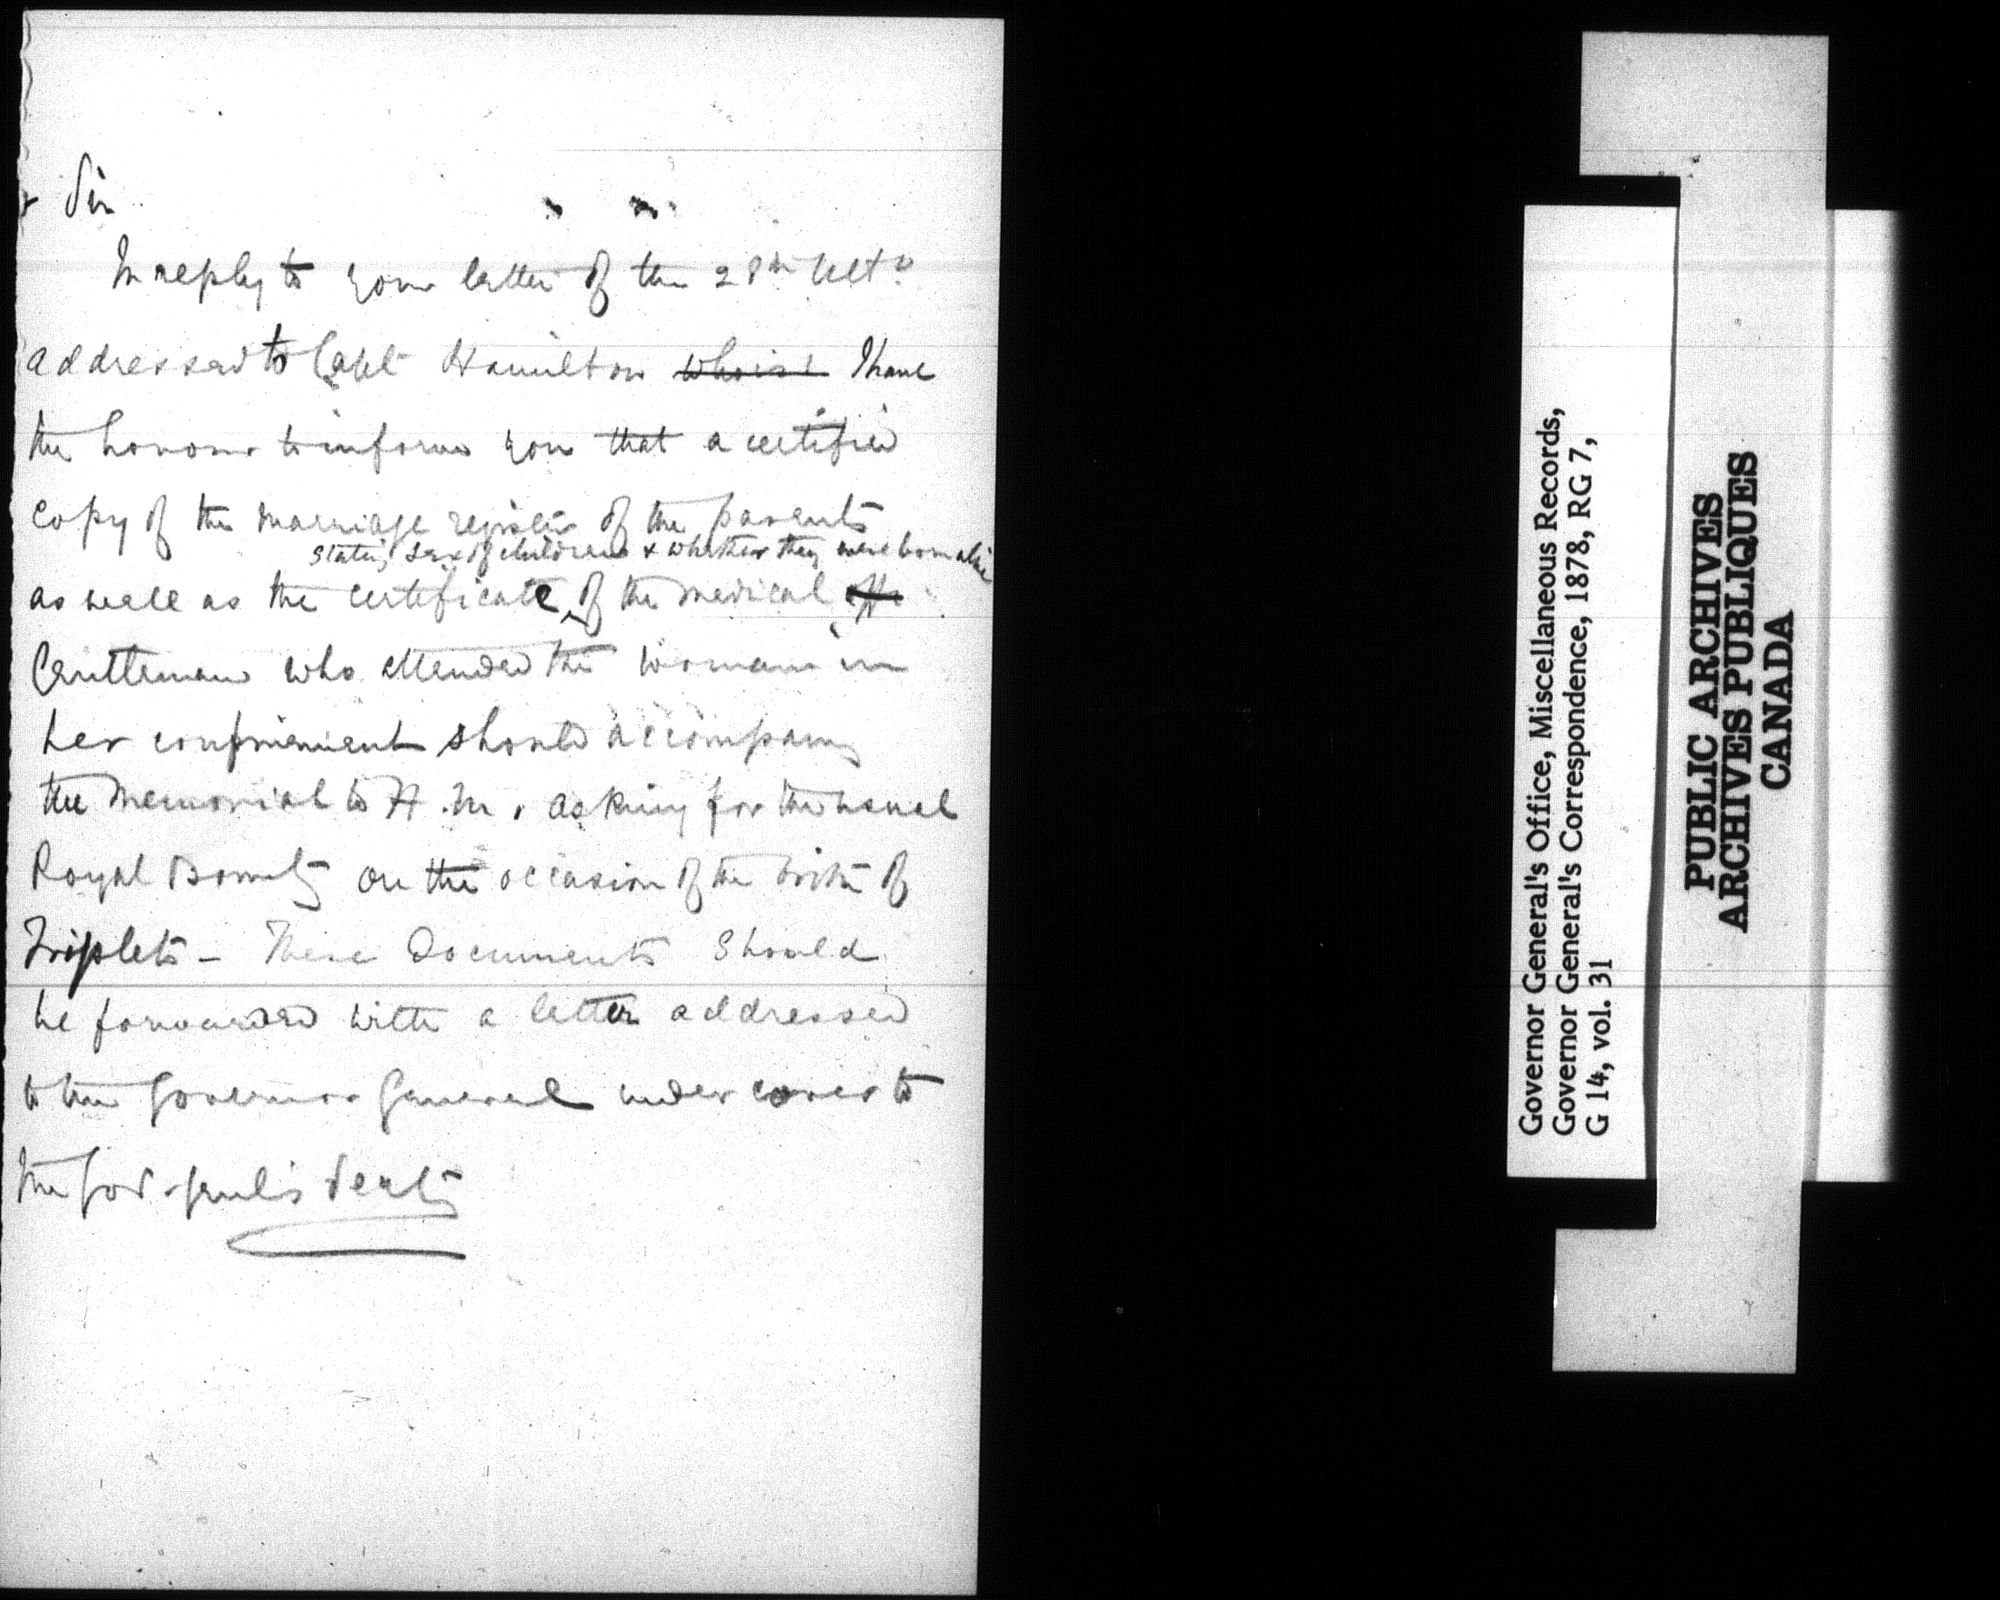 Sir
In reply to your letter of the 28th Ulto
addressed to Capt Hamilton I have
the honour to inform you that a certified
copy of the marriage register of the parents
stating sex of children & whether they were born alive
as well as the certificate of the medical
Gentleman who attended the woman in
her confinement should accompany
the memorial to H.M. asking for the usual
Royal Bounty on the occasion of the birth of
Triplets – These Documents should
be forwarded with a letter addressed
to the Governor General under cover to
the Gov. Genl's Secty
Governor General's Office, Miscellaneous Records,
Governor General's Correspondence, 1878, RG 7,
G 14, vol. 31
PUBLIC ARCHIVES
ARCHIVES PUBLIQUES
CANADA